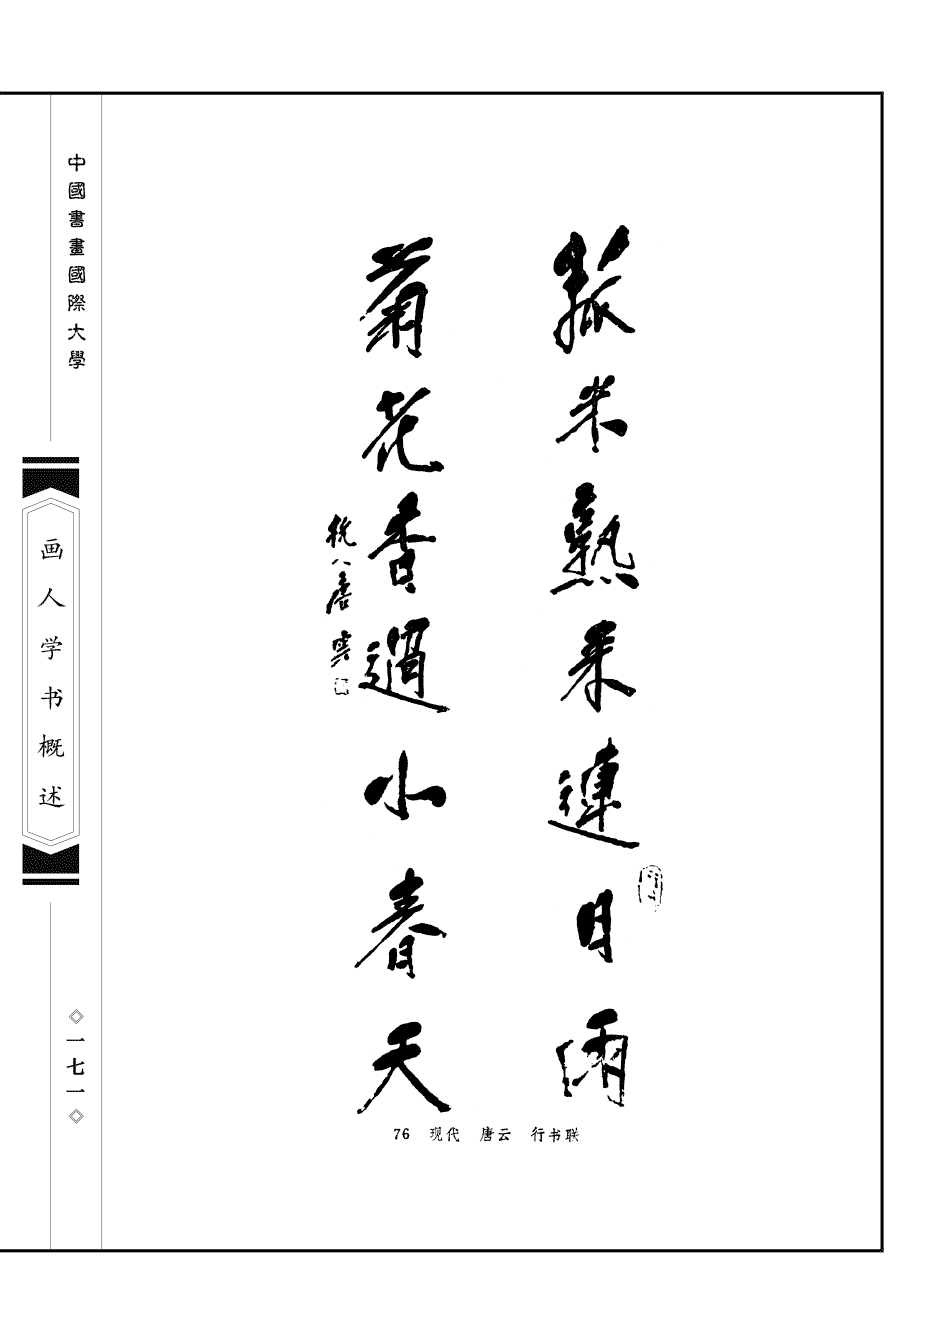 菰米熟来連日雨
菊花香過小春天
杭人唐雲
76 现代 唐云 行书联
中國書畫國際大學
画人学书概述
一七一